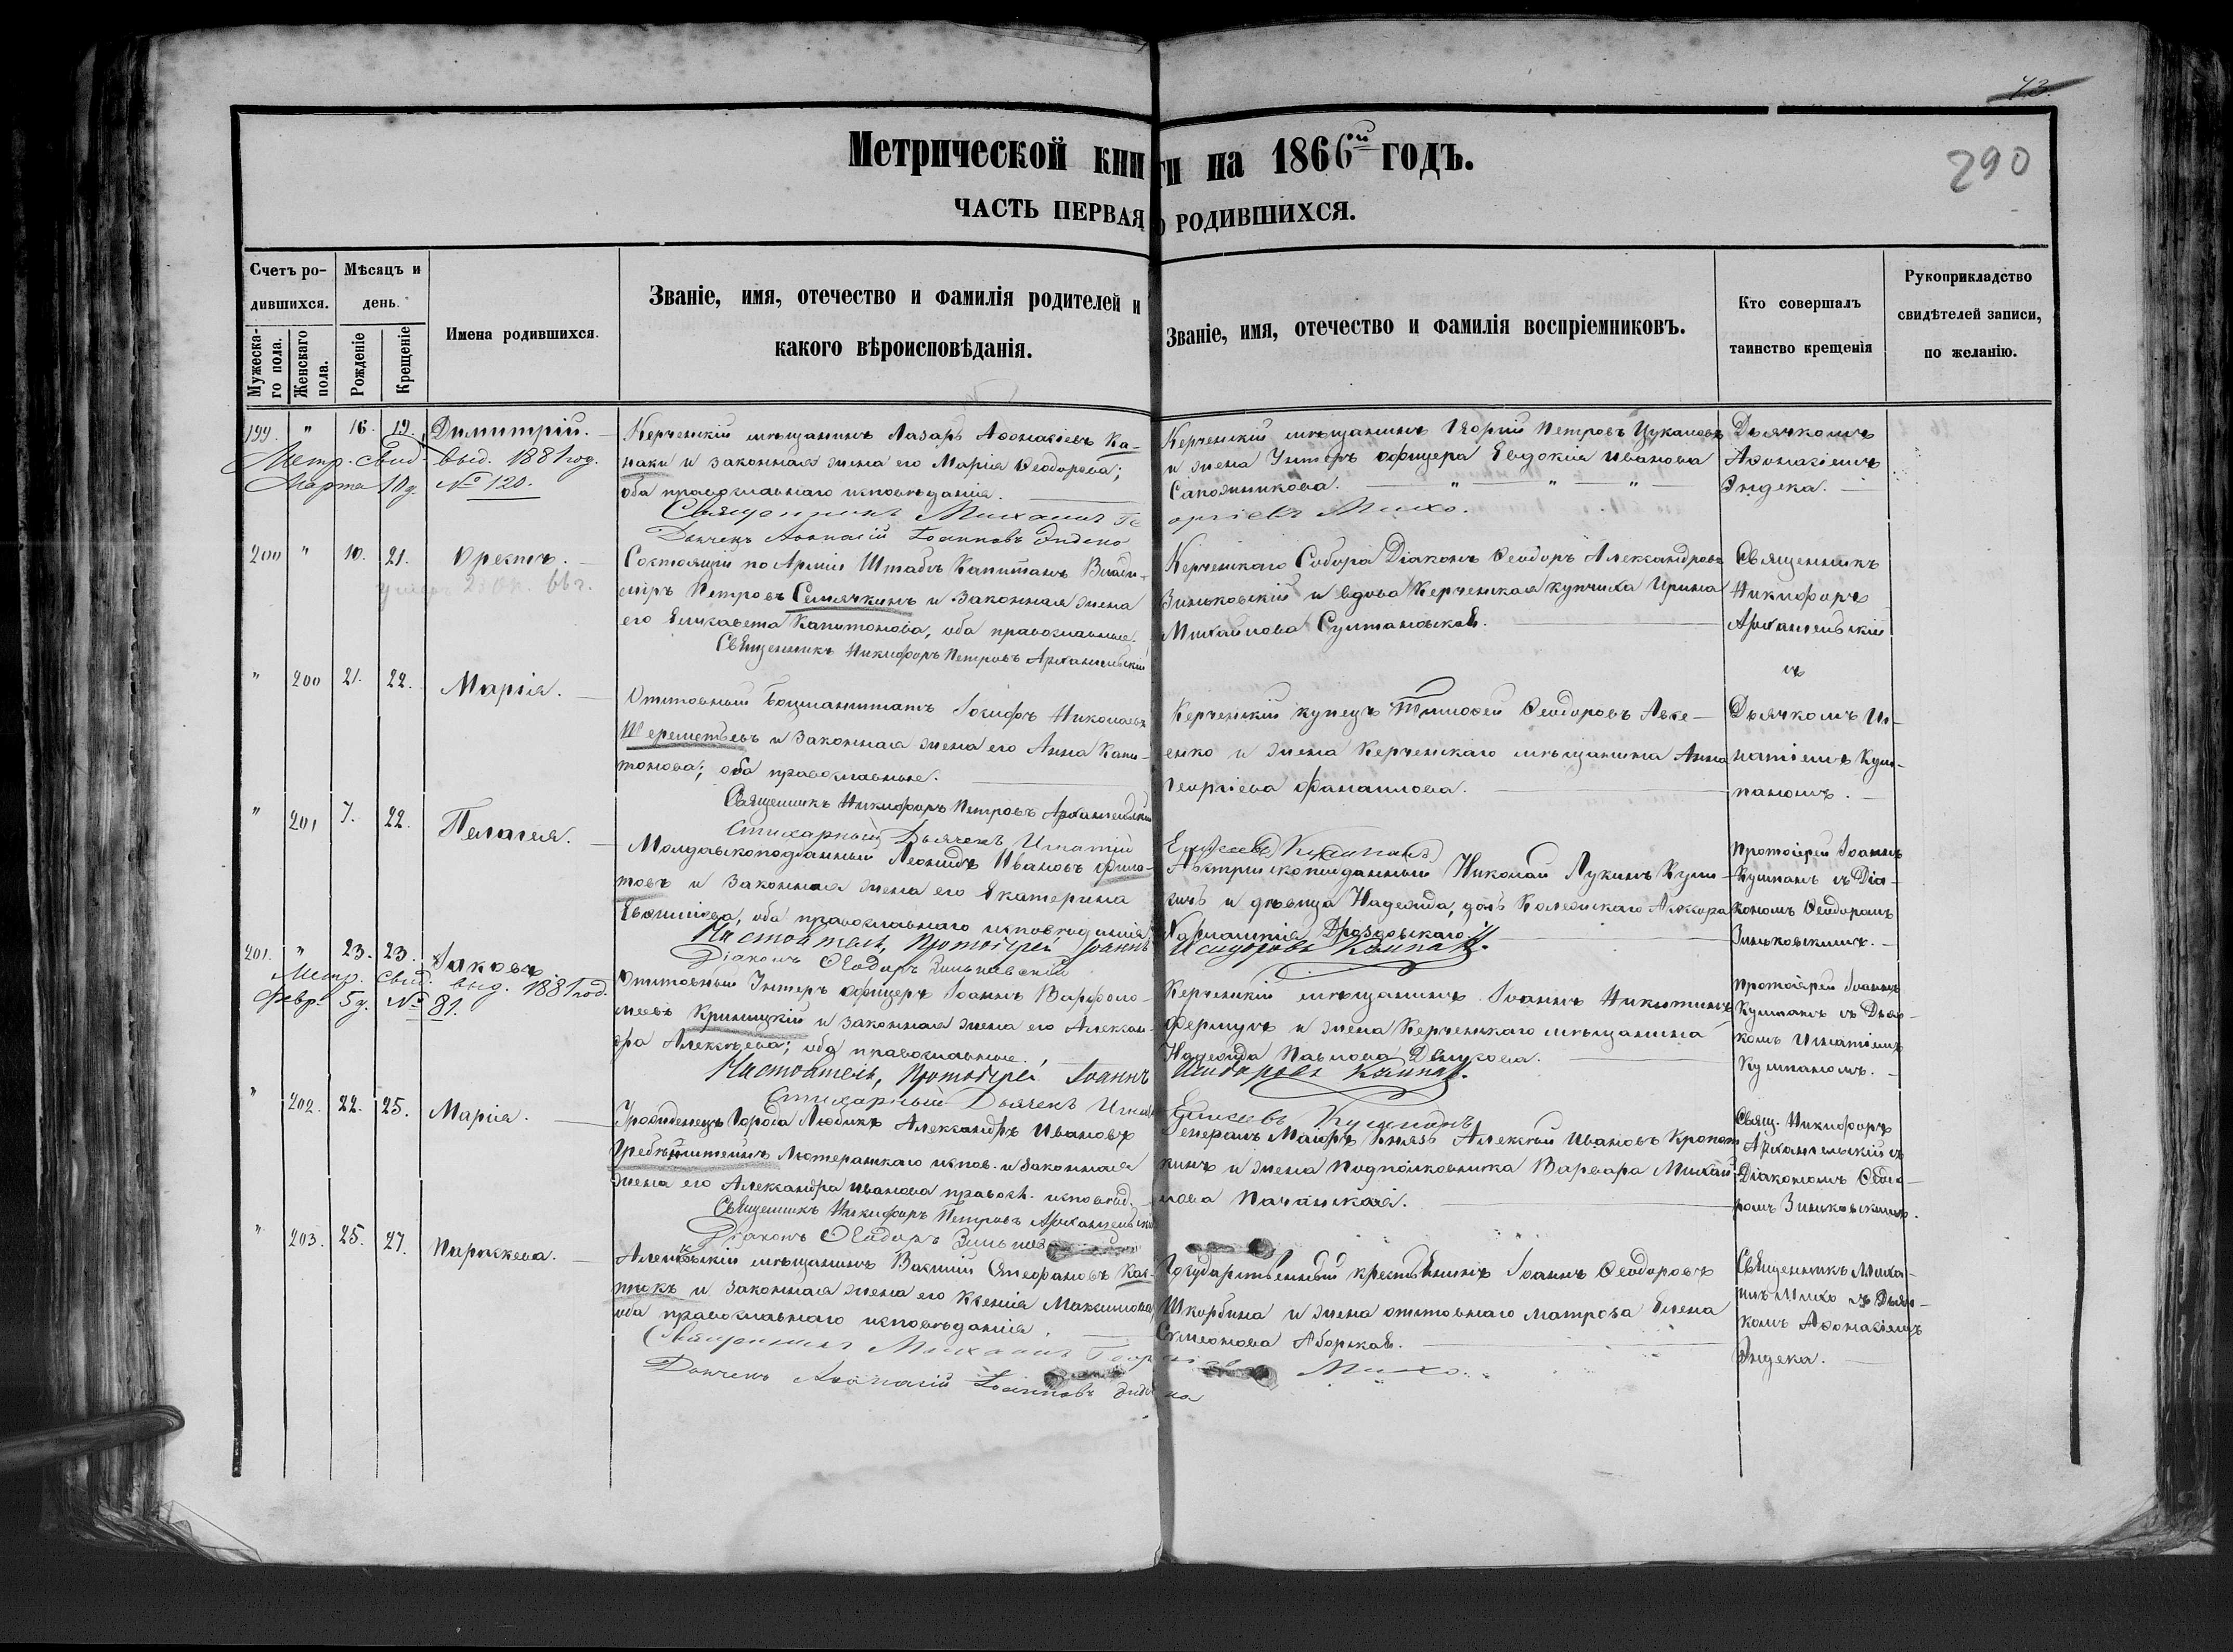 73.
290
Метрической книги на 1866ой годъ.
ЧАСТЬ ПЕРВАЯ О РОДИВШИХСЯ.
Счетъ родившихся.
Мужеска-
го пола.
Женскаго
пола.
Мѣсяцъ и
день.
Рожденіе
Крещеніе
Имена родившихся.
Званіе, имя, отечество и фамилія родителей и
какого вѣроисповѣданія.
Званіе, имя, отечество и фамилія воспріемниковъ.
Кто совершалъ
таинство крещенія
Рукоприкладство
свидѣтелей записи,
по желанію.
199. " 16. 19. Димитрій.
Метр. свид. выд. 1881 год.
Марта 10 д. № 120.
Керченскій мѣщанинъ Лазарь Аѳонасіевъ Ка-
наки и законная жена его Марія Ѳеодорова;
оба православнаго исповѣданія.
Священникъ Михаилъ Ге
оргіевъ Михо.
Дьячекъ Аѳанасій Іоанновъ Эндека
Керченскій мѣщанинъ Георгій Петровъ Цукановъ
и жена Унтеръ офицера Евдокія Иванова
Сапожникова.
Дьячкомъ
Аѳонасіемъ
Эндека.
200 " 10. 21. Орестъ.
умеръ 66 г.
Состоящій по Арміи Штабсъ Капитанъ Влади-
міръ Петровъ Семячкинъ и законная жена
его Елисавета Капитонова, оба православные.
Священникъ Никифоръ Петровъ Архангельскій
Керченскаго Собора Діаконъ Ѳеодоръ Александровъ
Зиньковскій и вдова Керченская купчиха Ирина
Михайлова Султановская.
Священникъ
Никифоръ
Архангельскій
" 200 21. 22. Марія.
Отставный Боцманматъ Іосифъ Николаевъ
Шереметьевъ и законная жена его Анна Капи-
тонова; оба православные.
Священникъ Никифоръ Петровъ Архангельскій
Стихарный Дьячекъ Игнатій
Елисеевъ Кушпанъ
Керченскій купецъ Тимоѳей Ѳеодоровъ Авксе-
енко и жена Керченскаго мѣщанина Анна
Георгіева Фанаилова.
съ
Дьячкомъ Иг-
натіемъ Куш-
паномъ.
" 201 7. 22. Пелагея.
Молдавскоподданный Леонидъ Ивановъ Фили-
товъ и законная жена его Екатерина
Евѳиміева, оба православнаго исповѣданія.
Настоятель, Протоіерей Іоаннъ
Исидоровъ Кушпанъ.
Діаконъ Ѳеодоръ Зиньковскій
Австрійскоподданный Николай Лукинъ Куш-
и дѣвица Надежда, дочь Коллежскаго Ассесора
Харлампія Дроздовскаго.
Протоіерей Іоаннъ
Кушпанъ съ Діа-
кономъ Ѳеодоромъ
Зиньковскимъ.
201. " 23. 23. Іаковъ
Метр. свид. выд. 1881 год.
Февр. 5 д. № 81.
Отставный Унтеръ офицеръ Іоаннъ Варѳоло-
меевъ Криницкій и законная жена его Алексан-
дра Алексѣева; оба православные.
Настоятель, Протоіерей Іоаннъ
Исидоровъ Кушпанъ.
Стихарный Дьячекъ Игнатій
Елисеевъ Кушпанъ
Керченскій мѣщанинъ Іоаннъ Никитинъ
и жена Керченскаго мѣщанина
Надежда Павлова
Протоіерей Іоаннъ
Кушпанъ съ Дьяч-
комъ Игнатіемъ
Кушпаномъ.
" 202. 22. 25. Марія.
Гражданецъ Города Любикъ Александръ Ивановъ
Гребнштейнъ Лютеранскаго испов. и законная
жена его Александра Иванова правосл. исповѣд.
Священникъ Никифоръ Петровъ Архангельскій
Діаконъ Ѳеодоръ Зиньков
Генералъ Маіоръ Князь Алексѣй Ивановъ Кропот-
кинъ и жена Подполковника Варвара Михай-
лова Пачинская.
Свящ. Никифоръ
Архангельскій съ
Діакономъ Ѳеодо-
ромъ Зиньковскимъ.
" 203. 25. 27. Параскева.
Алешковскій мѣщанинъ Василій Стефановъ Кас-
и законная жена его Ксенія Максимова
оба православнаго исповѣданія.
Священникъ Михаилъ Георгіевъ
Михо.
Дьячекъ Аѳанасій Іоанновъ Эндека
Государственный крестьянинъ Іоаннъ Ѳеодоровъ
Шкорбина и жена отставнаго матроса Елена
Семеонова Аборская.
Священникъ Миха-
илъ Михо съ Дьяч-
комъ Аѳонасіемъ
Эндека.